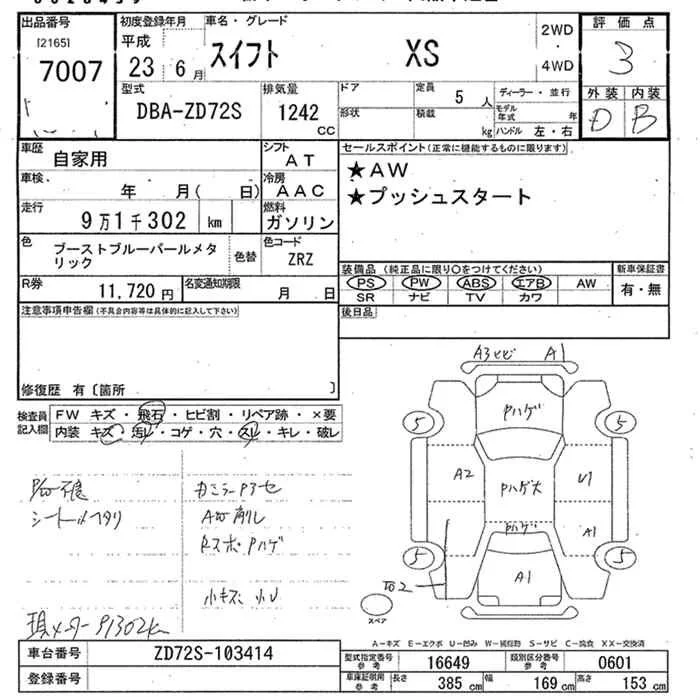 出品番号
[2165]
7007
初度登録年月
平成
23 6月
車名・グレード
スイフト XS
2WD
・
4WD
評価点
3
型式
DBA-ZD72S
排気量
1242
cc
ドア
形状
定員
5人
積載
kg
ディーラー・並行
モデル年式 年
ハンドル 左・右
外装 内装
D B
車歴
自家用
シフト
AT
セールスポイント(正常に機能するものに限ります)
★AW
★プッシュスタート
車検
年 月( 日)
冷房
AAC
走行
9万1千302 km
燃料
ガソリン
色
ブーストブルーパールメタリック
色替
色コード
ZRZ
装備品(純正品に限り○をつけてください)
新車保証書
PS PW ABS エアB AW
有・無
SR ナビ TV カワ
R券
11,720円
名変通知期限
月 日
注意事項申告欄(不具合内容等は具体的に記入して下さい)
後日品
修復歴 有〔箇所 〕
検査員記入欄
FW キズ・飛石・ヒビ割・リペア跡・×要
内装 キズ・汚レ・コゲ・穴・スレ・キレ・破レ
A3ヒビ A1
Pハゲ
5 5
A2 Pハゲ大 U1
Pハゲ A1
5 5
A1
シートヘタリ
カミラーPアセ
AW削レ
RスポPハゲ
小キズ 小U
現メーター91302k
スペア
A-キズ E-エクボ U-凹み W-補修跡 S-サビ C-腐食 XX-交換済
車台番号
ZD72S-103414
登録番号
型式指定番号
参考
16649
類別区分番号
参考
0601
車庫証明用
参考
長さ
385 cm
幅
169 cm
高さ
153 cm